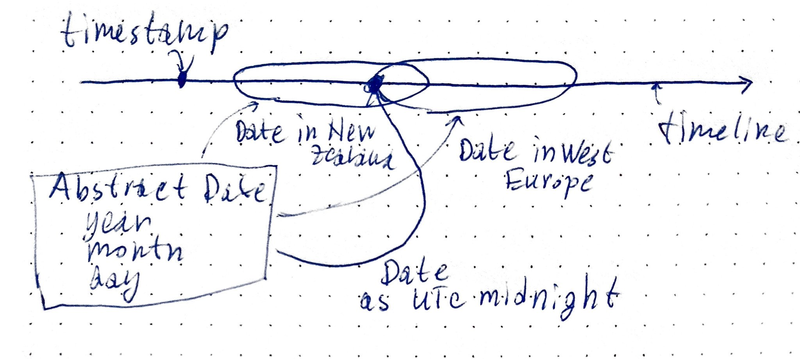 timestamp
Date in New
Zealand
Date in West
Europe
timeline
Abstract Date
year
month
day
Date
as UTC midnight